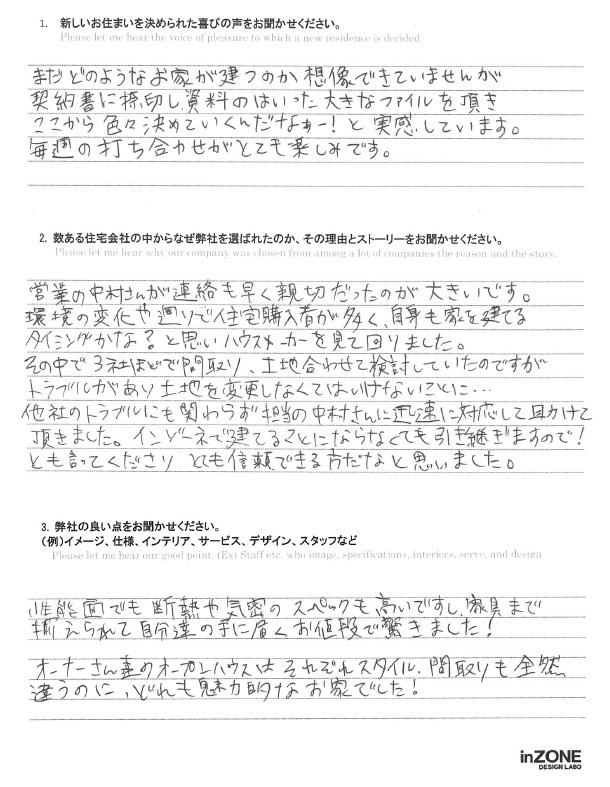 1. 新しいお住まいを決められた喜びの声をお聞かせください。
Please let me hear the voice of pleasure to which a new residence is decided.
まだどのようなお家が建つのか想像できていませんが
契約書に捺印し資料のはいった大きなファイルを頂き
ここから色々決めていくんだなぁー!と実感しています。
毎週の打ち合わせがとても楽しみです。
2. 数ある住宅会社の中からなぜ弊社を選ばれたのか、その理由とストーリーをお聞かせください。
Please let me hear why our company was chosen from among a lot of companies the reason and the story.
営業の中村さんが連絡も早く親切だったのが大きいです。
環境の変化や週りで住宅購入者が多く、自身も家を建てる
タイミングかな?と思いハウスメーカーを見て回りました。
その中で3社ほどで間取り、土地合わせて検討していたのですが
トラブルがあり土地を変更しなくてはいけないことに…
他社のトラブルにも関わらず担当の中村さんに迅速に対応して助けて
頂きました。インゾーネで建てることにならなくても引き継ぎますので!
とも言ってくださり とても信頼できる方だなと思いました。
3. 弊社の良い点をお聞かせください。
(例)イメージ、仕様、インテリア、サービス、デザイン、スタッフなど
Please let me hear our good point. (Ex) Staff etc. who image, specifications, interiors, serve, and design
性能面でも断熱や気密のスペックも高いですし、家具まで
揃えられて自分達の手に届くお値段で驚きました!
オーナーさん達のオープンハウスはそれぞれスタイル、間取りも全然
違うのに、どれも魅力的なお家でした!
inZONE
DESIGN LABO